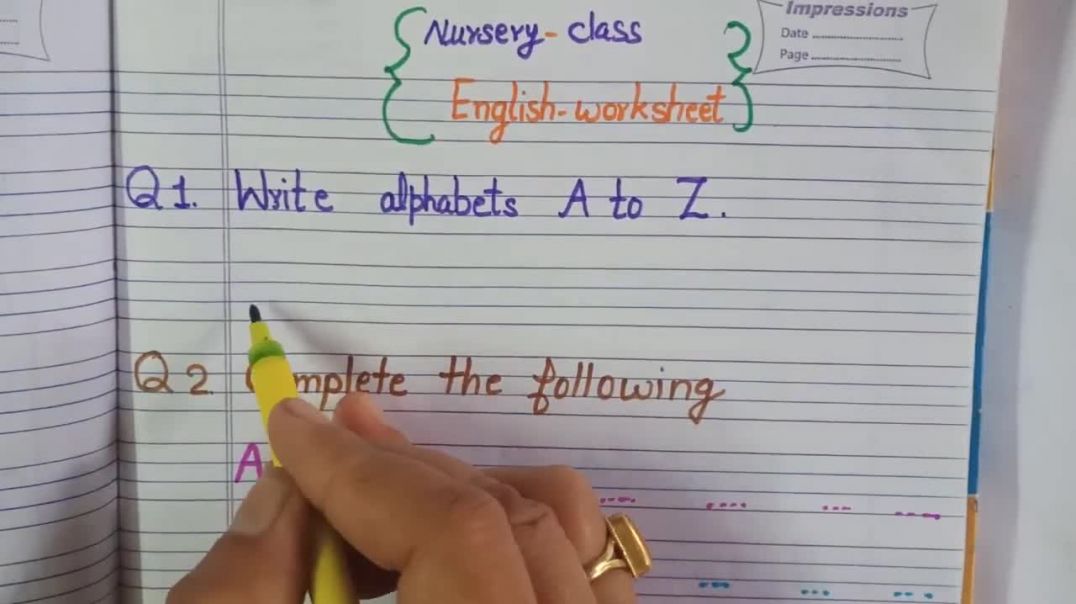 Impressions
Nursery-class
Date
Page
English-worksheet
Q1. Write alphabets A to Z.
Q2 Complete the following
A